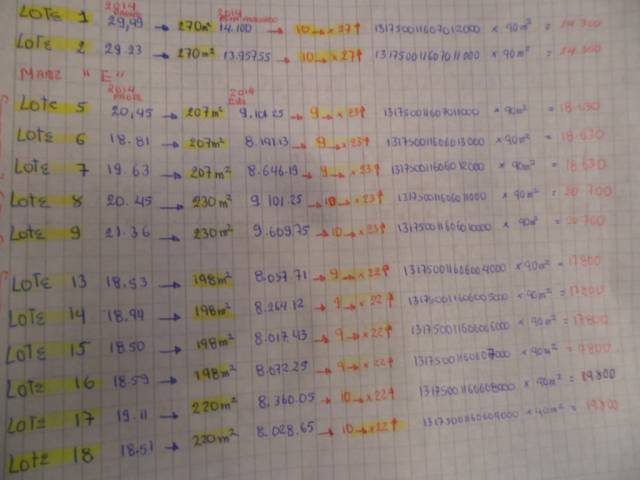 2014 2014
LOTE 1 29,99 → 270m² 14.100 → 10 → x 27↑ 1317500116070 12000 x 90m² = 24.300
LOTE 2 29.23 → 270m² 13.957.55 → 10 → x 27↑ 1317500116070 11000 x 90m² = 24.300
MANZ " E "
2014 2014
LOTE 5 20,45 → 207m² 9.101.25 → 9 → x 23↑ x 90m² = 18.630
LOTE 6 18.81 → 207m² 8.191.13 → 9 → x 23↑ 1317500116060 13000 x 90m² = 18.630
LOTE 7 19.63 → 207m² 8.646.19 → 9 → x 23↑ 1317500116060 12000 x 90m² = 18.630
LOTE 8 20.45 → 230m² 9.101.25 → 10 → x 23↑ 1317500116060 11000 x 90m² = 20 700
LOTE 9 21.36 → 230m² 9.609.75 → 10 → x 23↑ 1317500116060 10000 x 90m² = 20 700
LOTE 13 18.53 → 198m² 8.037.71 → 9 → x 22↑ 131750011606004000 x 90m² = 17800
LOTE 14 18.94 → 198m² 8.264.12 → 9 → x 22↑ 131750011606005000 x 90m² = 17800
LOTE 15 18.50 → 198m² 8.017.43 → 9 → x 22↑ 131750011606006000 x 90m² = 17800
LOTE 16 18.59 → 198m² 8.072.25 → 9 → x 22↑ x 90m² = 17800
LOTE 17 19.11 → 220m² 8.360.05 → 10 → x 22↑ x 90m² = 19.800
LOTE 18 18.51 → 220m² 8.028.65 → 10 → x 22↑ x 90m² = 19.800